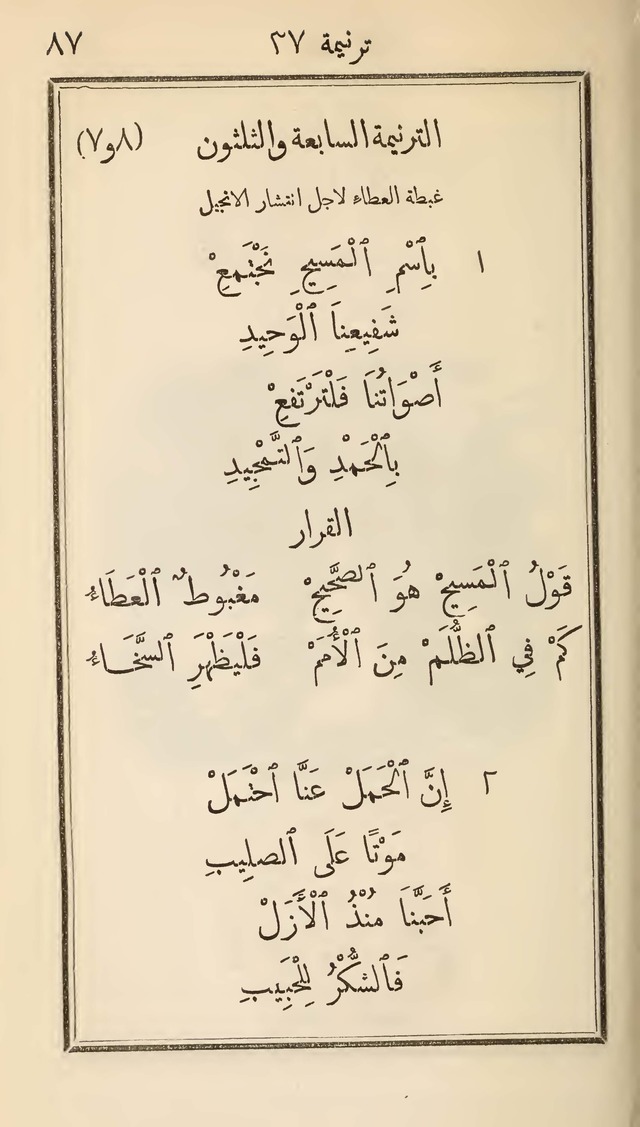 ترنيمة ٣٧ ٨٧
الترنيمة السابعة والثلثون (٨و٧)
غبطة العطاء لاجل انتشار الانجيل
١ بِٱسْمِ ٱلْمَسِيحِ نَجْتَمِعْ
شَفِيعِنَا ٱلْوَحِيدِ
أَصْوَاتُنَا فَلْتَرْتَفِعْ
بِٱلْحَمْدِ وَٱلتَّمْجِيدِ
القرار
قَوْلُ ٱلْمَسِيحْ هُوَ ٱلصَّحِيحْ مَغْبُوطٌ ٱلْعَطَاءُ
كَمْ فِي ٱلظُّلَمْ مِنَ ٱلْأُمَمْ فَلْيَظْهَرِ ٱلسَّخَاءُ
٢ إِنَّ ٱلْحَمَلْ عَنَّا ٱحْتَمَلْ
مَوْتًا عَلَى ٱلصلِيبِ
أَحَبَّنَا مُنْذُ ٱلْأَزَلْ
فَٱلشُّكْرُ لِلْحَبِيبِ